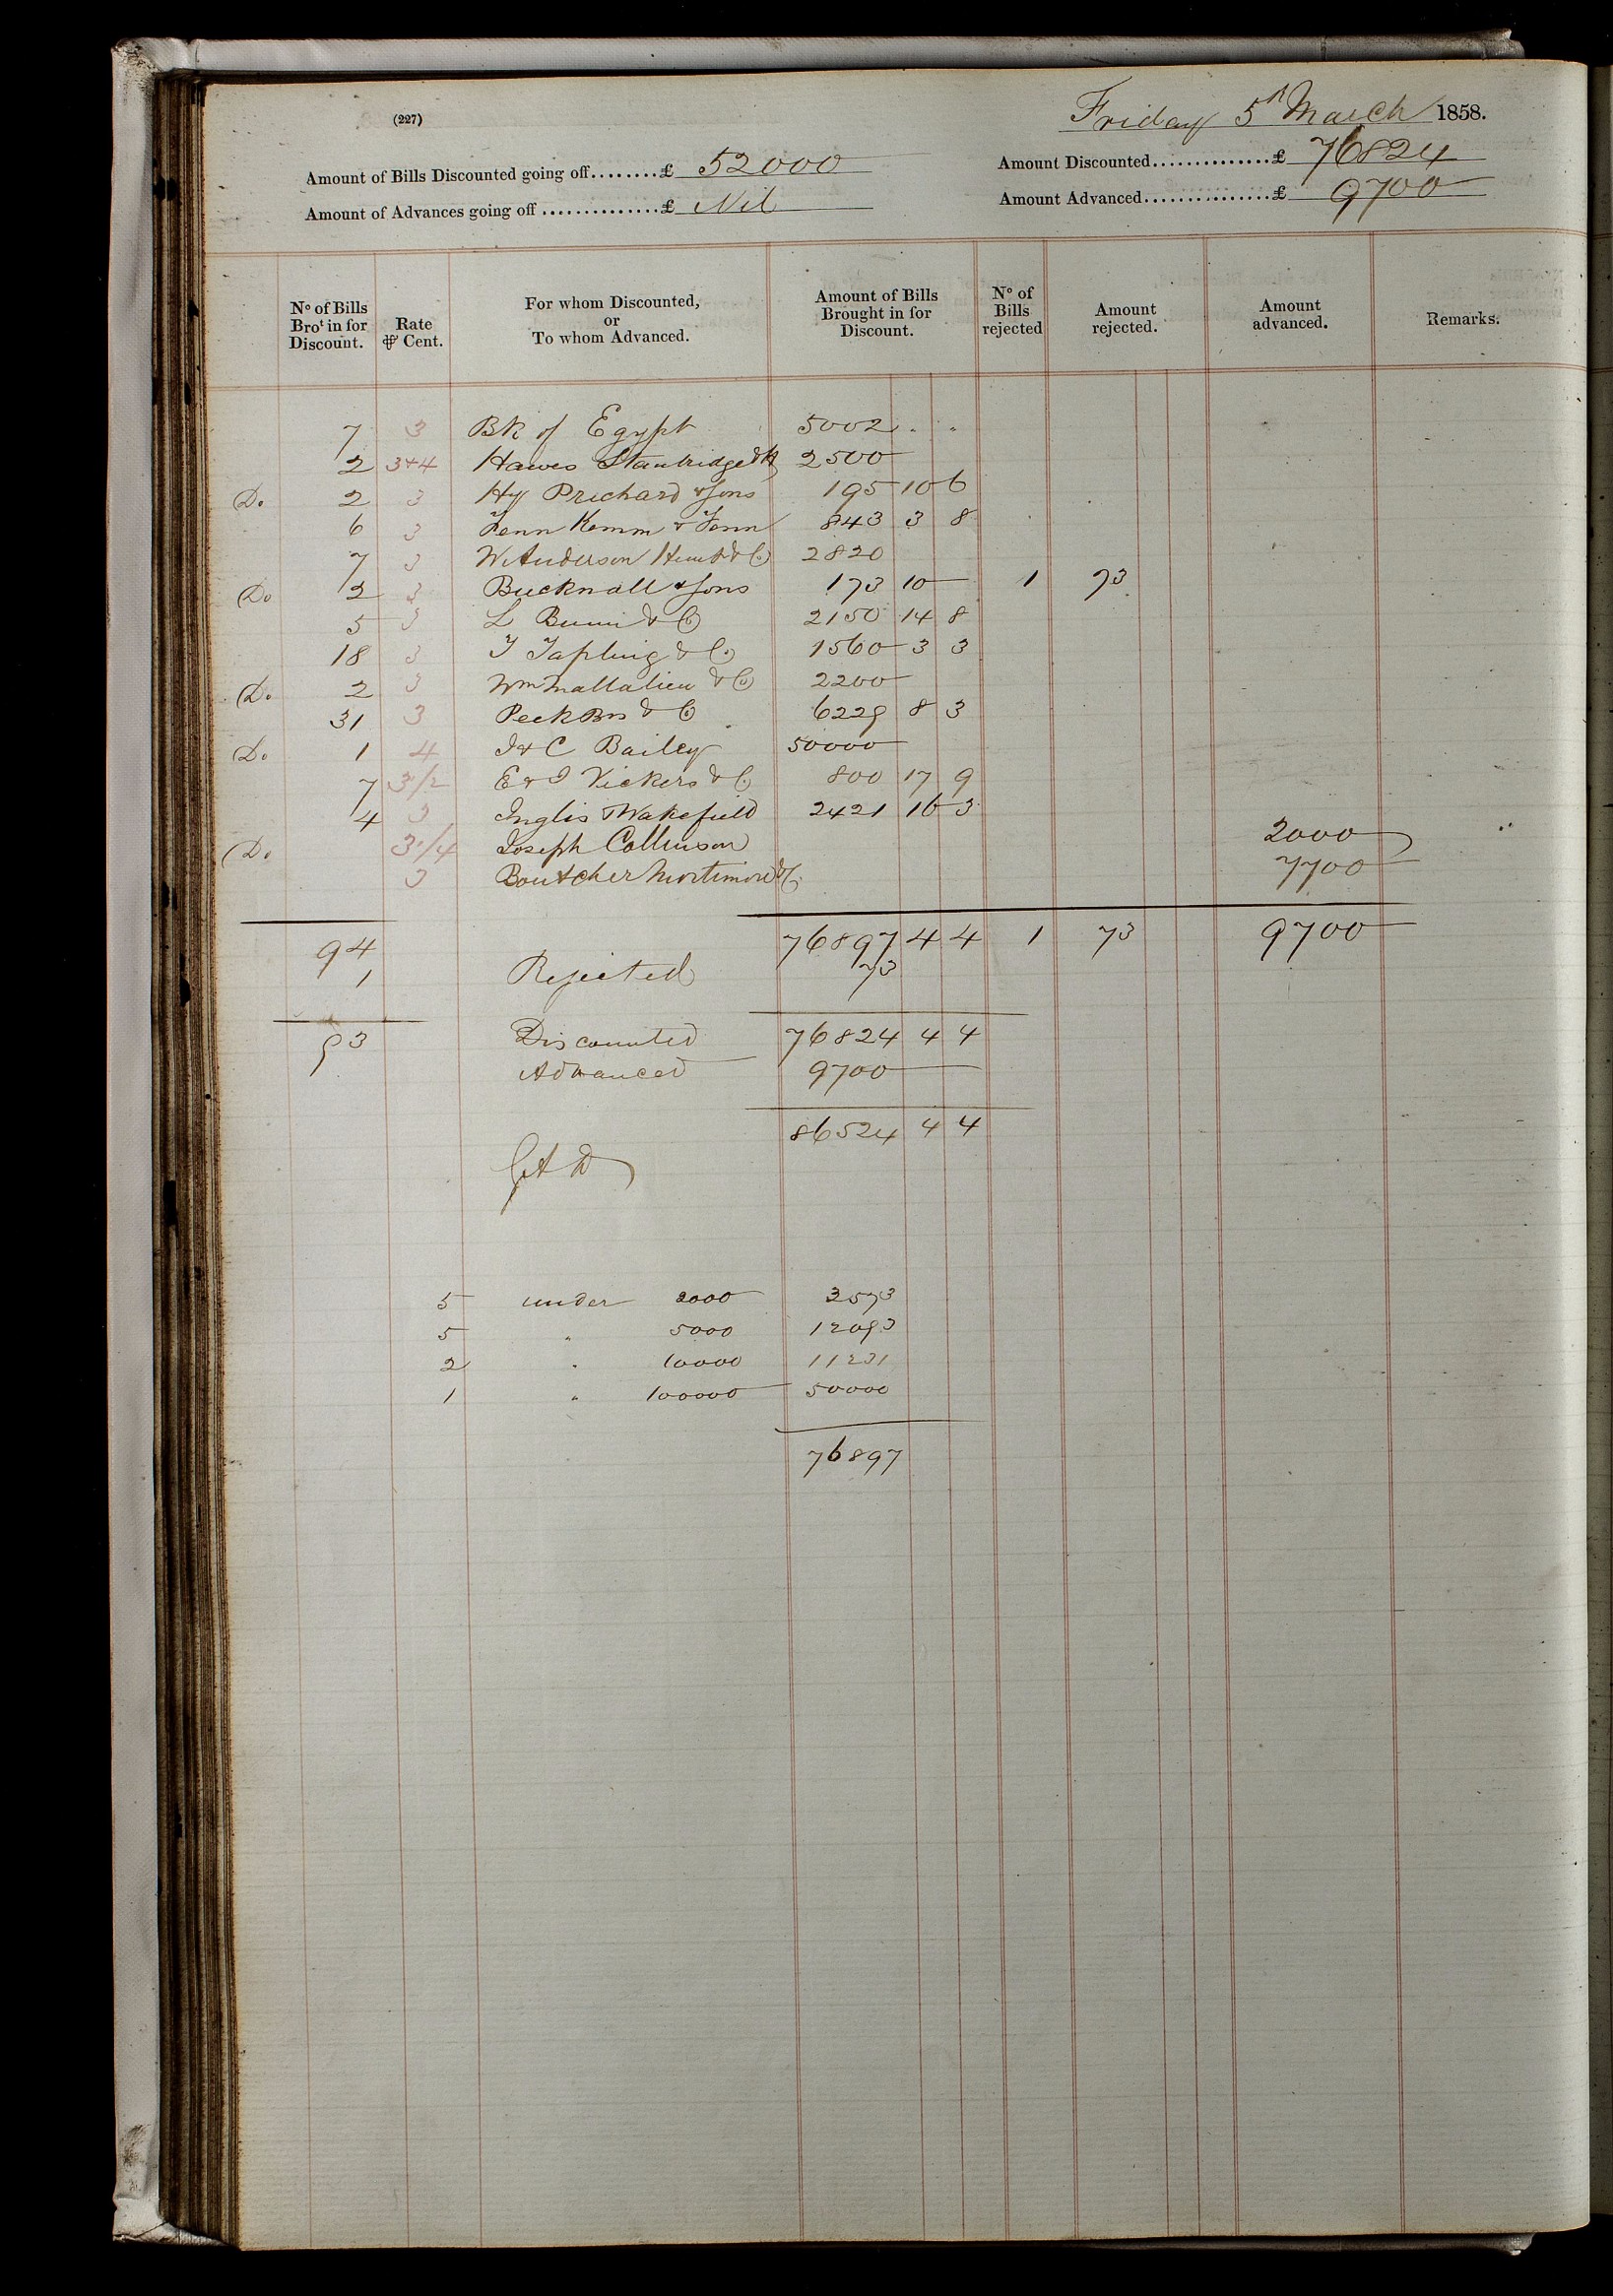 (227)
Friday 5th March 1858.
Amount of Bills Discounted going off........£ 52000
Amount Discounted..............£ 76824
Amount of Advances going off..............£ Nil
Amount Advanced..............£ 9700
No of Bills Brot in for Discount. Rate ⅌ Cent. For whom Discounted, or To whom Advanced. Amount of Bills Brought in for Discount. No of Bills rejected Amount rejected. Amount advanced. Remarks.
7 3 Bk of Egypt 5002 " "
2 3+4 Hawes Stanbridge & 2500
Do 2 3 Hy Prichard & Sons 195 10 6
6 3 Fenn Kemm & Fenn 843 3 8
7 3 W Anderson & Co 2820
Do 2 3 Bucknall & Sons 173 10 1 73
5 3 L & Co 2150 14 8
18 3 T Tapling & Co 1560 3 3
Do 2 3 Wm Mallalieu & Co 2200
31 3 Peek Bros & Co 6229 8 3
Do 1 4 J & C Bailey 50000
7 3 1/2 E & J Vickers & Co 800 17 9
4 3 Inglis & Wakefield 2421 16 3
Do 3 1/4 Joseph Collinson 2000
3 Boutcher Mortimore & Co 7700
94 76897 4 4 1 73 9700
1 Rejected 73
93 Discounted 76824 4 4
Advanced 9700
86524 4 4
5 under 2000 3573
5 " 5000 12093
2 " 10000 11231
1 " 100000 50000
76897